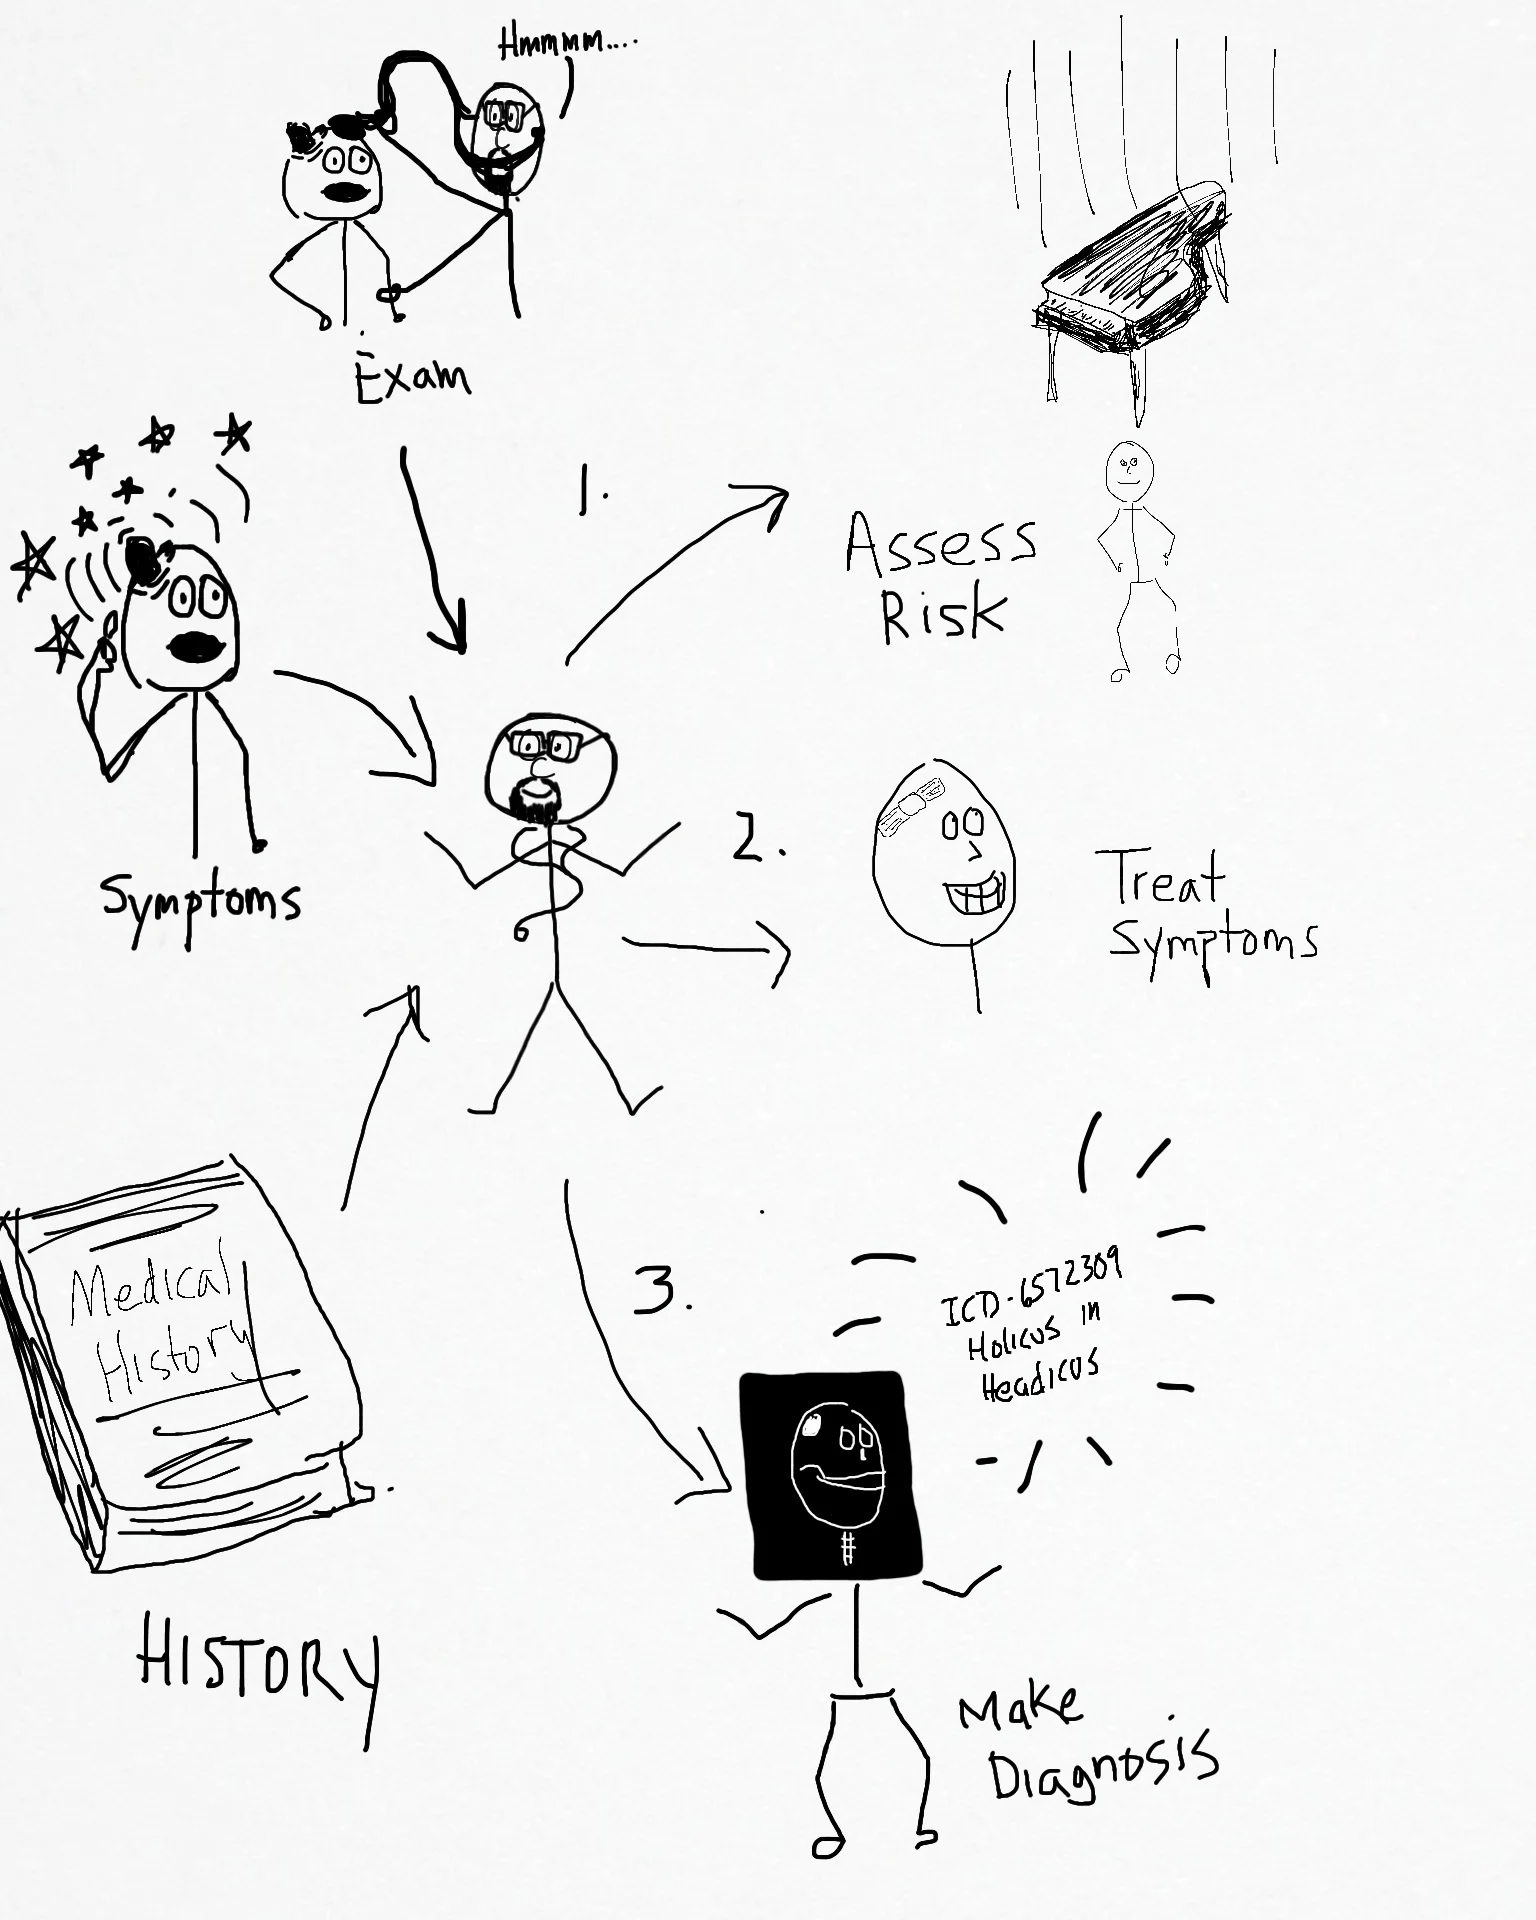 Hmmmm....
Exam
1.
Assess
Risk
Symptoms
2.
Treat
Symptoms
Medical
History
HISTORY
3.
ICD-6572309
Holicus in
Headicus
Make
Diagnosis